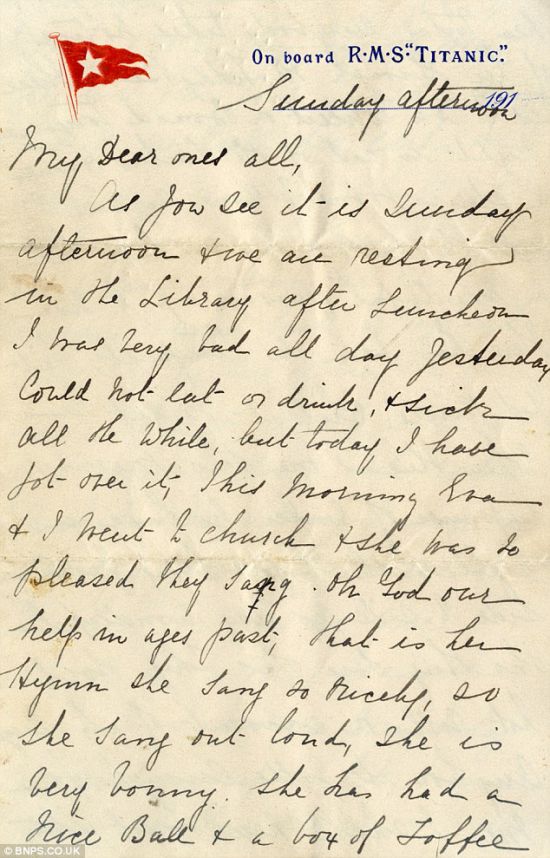 On board R·M·S·"TITANIC".
191
Sunday afternoon
My Dear ones all,
As you see it is Sunday
afternoon & we are resting
in the Library after Luncheon
I was very bad all day Yesterday
Could not eat or drink, & sick
all the while, but today I have
got over it, This morning Eva
& I went to church & she was so
pleased they sang Oh God our
help in ages past, that is her
Hymn she sang so nicely, so
she sang out loud, she is
very bonny. She has had a
nice Ball & a box of Toffee
© BNPS.CO.UK